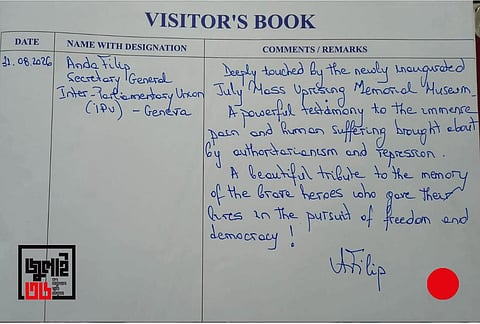 VISITOR'S BOOK
DATE
NAME WITH DESIGNATION
COMMENTS / REMARKS
21.08.2026
Anda Filip
Secretary General
Inter-Parliamentary Union
(IPU) - Geneva
Deeply touched by the newly inaugurated
July Mass Uprising Memorial Museum.
A powerful testimony to the immense
pain and human suffering brought about
by authoritarianism and repression.
A beautiful tribute to the memory
of the brave heroes who gave their
lives in the pursuit of freedom and
democracy!
AFilip
জুলাই